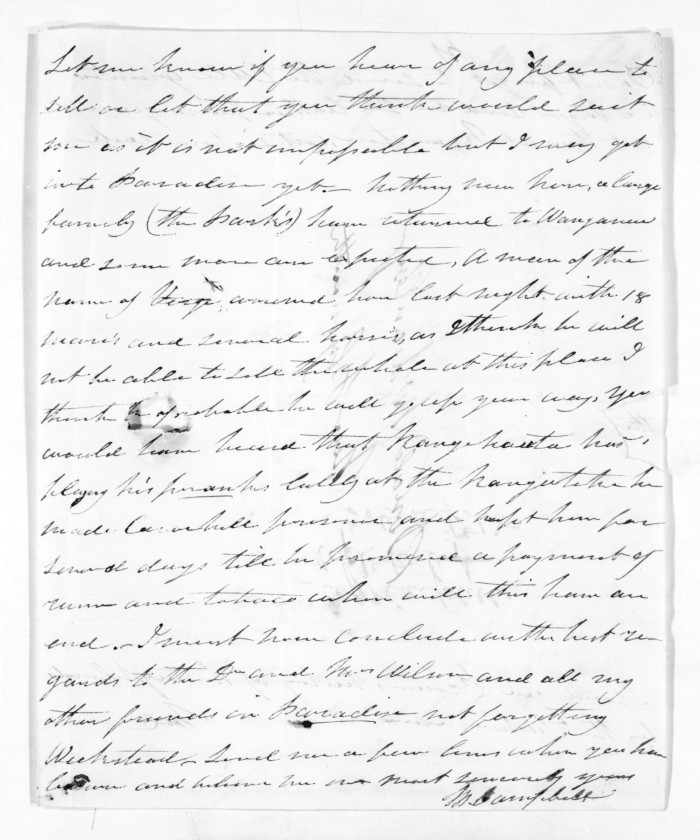 Let me know if you hear of any place to
sell or let that you think would suit
me as it is not impossible but I may get
into Paradise yet - Nothing new here, a large
family (the Park's) have returned to Wanganui
and some more are expected, A man of the
name of arrived here last night with 18
mares and several horses, as I think he will
not be able to sell the whole at this place I
think it probable he will go up your way, You
would have heard that Rangihaeata has
playing his pranks lately at the Rangitikei he
made prisoner and kept him for
several days till he promised a payment of
rum and tobacco when will this have an
end - I must now conclude with best re-
gards to the Dr and Mrs Wilson and all my
other friends in Paradise not forgetting
Wicksteed - Send me a few lines when you have
leisure and believe me most sincerely yours
M Campbell